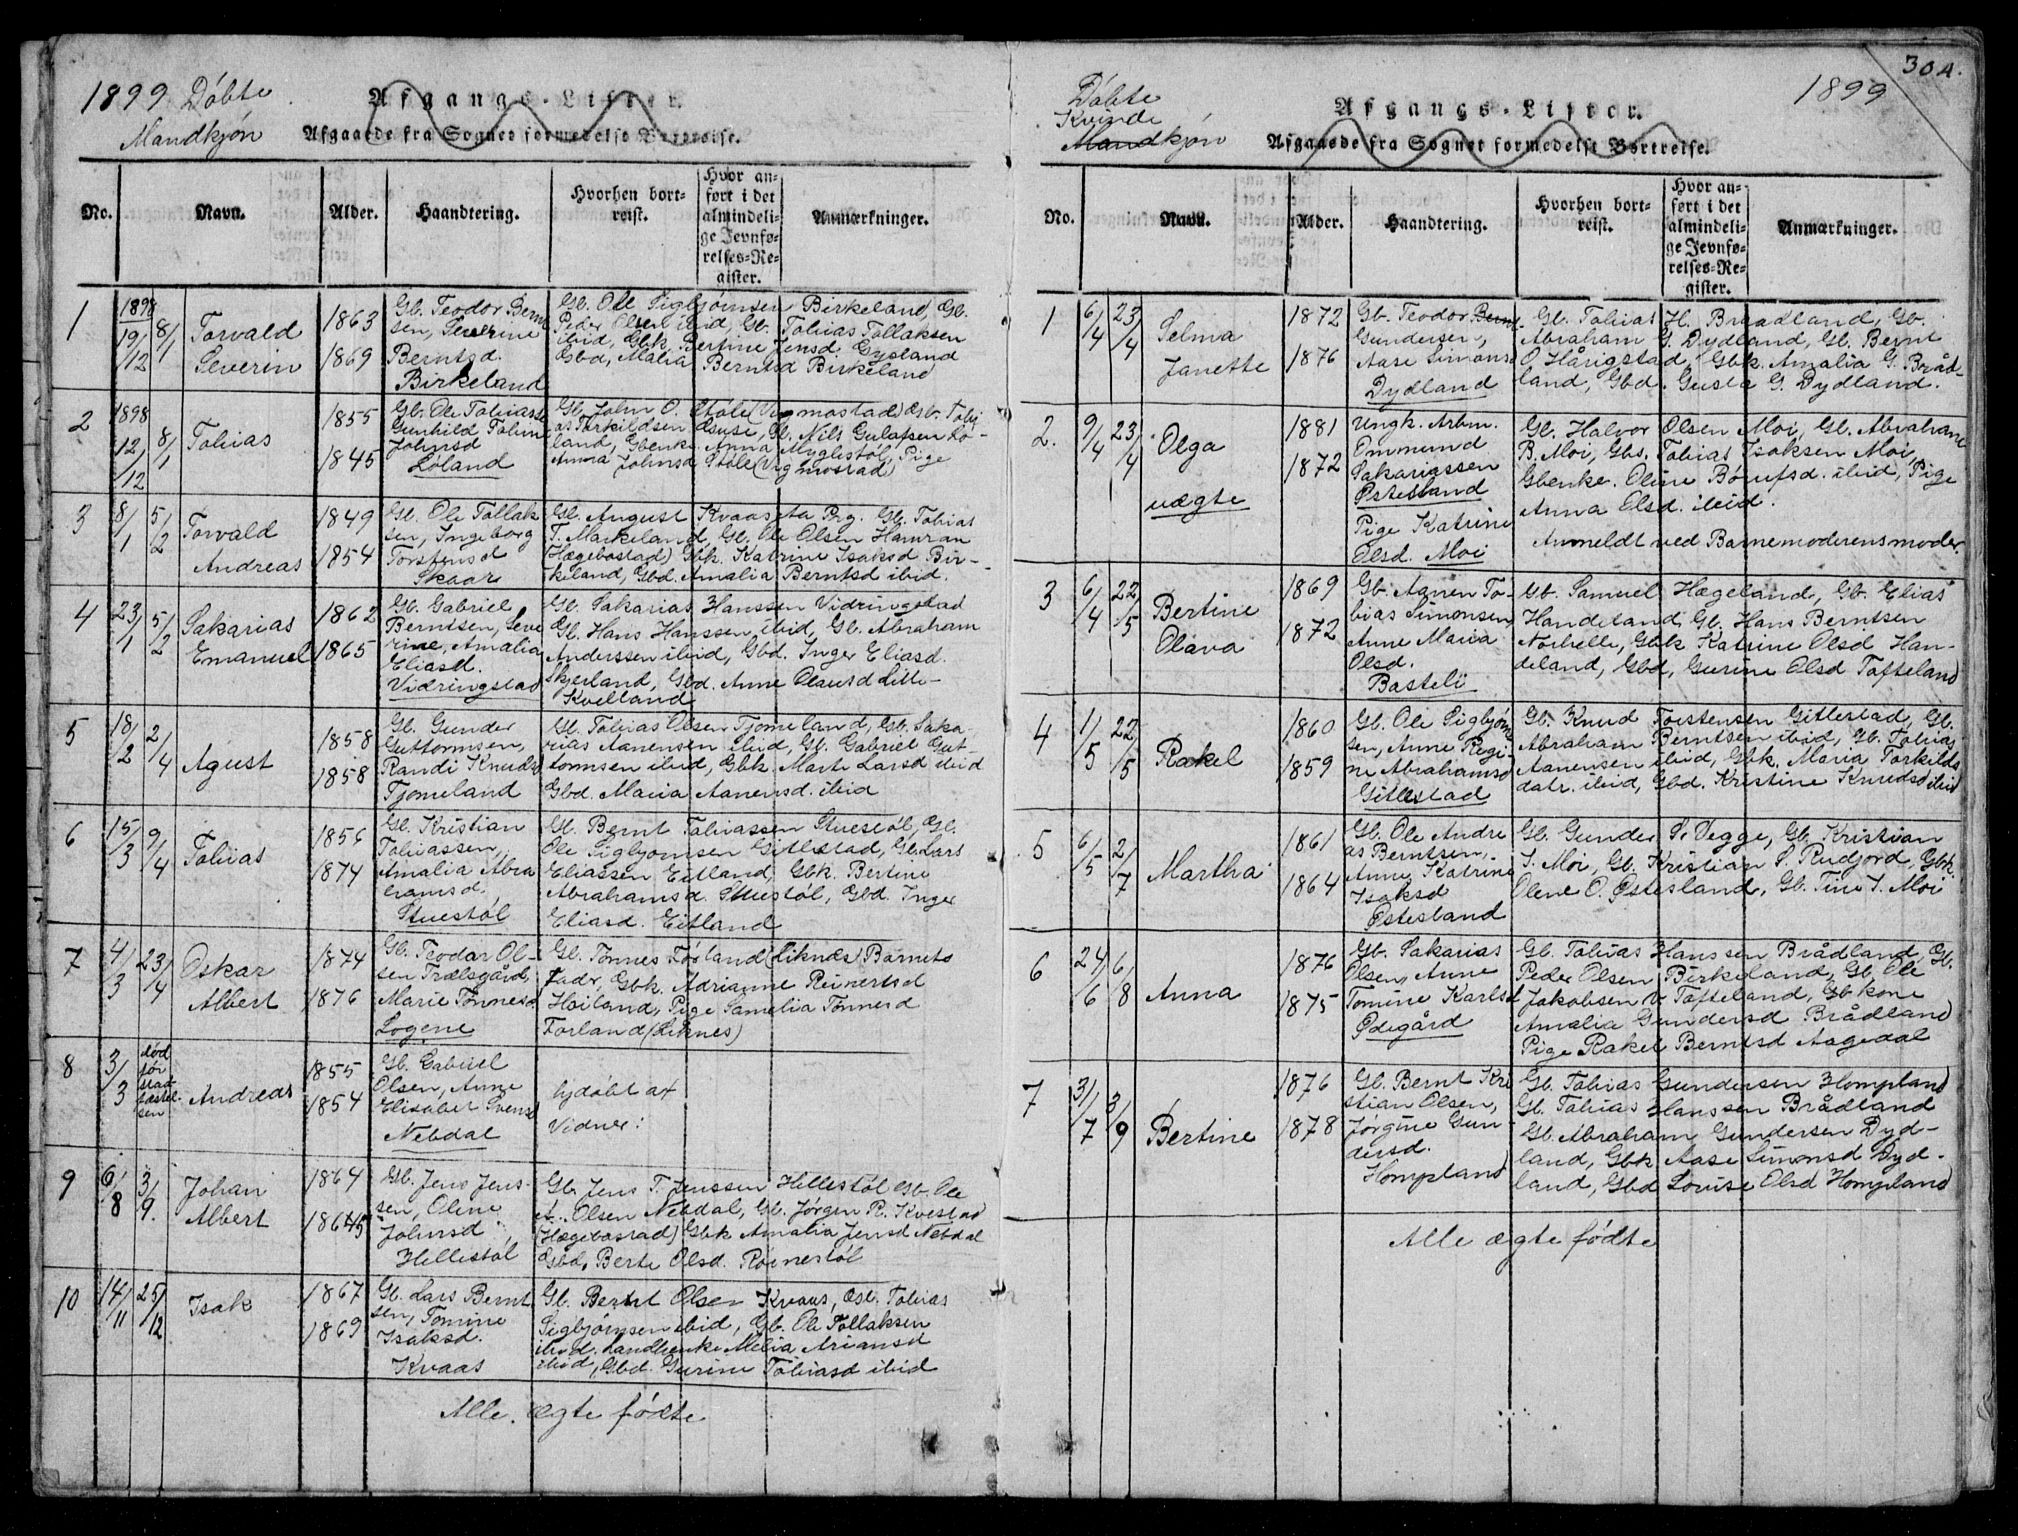 1899 Döbte
Mandkjön
Afgangs-Lister.
Afgaaede fra Sognet formedelst Bortreise.
No.
Navn.
Alder.
Haandtering.
Hvorhen bort-
reist.
Hvor an-
ført i det
almindeli-
ge Jevnfø-
relses-Re-
gister.
Anmærkninger.
1
1898
19/12
8/1
Torvald
Severin
1863
1869
Gb. Teodor Bernt
sen, Severine
Berntsd.
Birkeland
Gb. Ole Sigbjörnsen Birkeland, Gb.
Peder Olsen ibid, Gb. Tobias Tollaksen
ibid, Gbk. Bertine Jensd. Gysland
Gbd, Malia Berntsd Birkeland
2
1898
12/12
8/1
Tobias
1855
1845
Gb. Ole Tobiass
Gunhild Tobine
Johnsd
Löland
Gb. John O. Stöle (Vigmostad) Gb. Tobi
as Torkildsen Osuse, Gb. Nils Gulafsen Lö-
land, Gbenke Anna Myglestöl, Pige
Anna Johnsd Stöle (Vigmostad)
3
8/1
5/2
Torvald
Andreas
1849
1854
Gb. Ole Tollak
sen, Ingeborg
Torstensd
Skaar
Gb. August Kvaas Gb. Tobias
T. Markeland, Gb. Ole Olsen Hamran
(Hægebostad) Gbk. Katrine Isaksd Bir-
keland, Gbd. Amalia Berntsd ibid.
4
23/1
5/2
Sakarias
Emanuel
1862
1865
Gb. Gabriel
Berntsen, Seve
rine, Amalia
Eliasd.
Vidringstad
Gb. Sakarias Hanssen Vidringstad
Gb. Hans Hanssen ibid, Gb. Abraham
Anderssen ibid, Gbd. Inger Eliasd.
Skjerland, Gbd. Anne Olausd Litle-
Kvelland
5
18/2
2/4
Agust
1858
1858
Gb. Gunder
Guttormsen,
Randi Knudsd
Tjomeland
Gb. Tobias Olsen Tjomeland, Gb. Saka-
rias Aanensen ibid, Gb. Gabriel Gut-
tormsen ibid, Gbk. Marte Larsd ibid
Gbd. Maria Aanensd. ibid
6
15/3
9/4
Tobias
1856
1874
Gb. Kristian
Tobiassen,
Amalia Abra
hamsd.
Stuestöl
Gb. Bernt Tobiassen Stuestöl, Gb.
Ole Sigbjörnsen Gitlestad, Gb. Lars
Eliassen Eitland, Gbk. Bertine
Abrahamsd. Stuestöl, Gbd. Inger
Eliasd. Eitland
7
4/3
23/4
Oskar
Albert
1874
1876
Gb. Teodor Ol-
sen Trælsgård,
Marie Tönnesd
Logene
Gb. Tönnes Förland (Liknes) Barnets
Fader, Gbk. Adrianne Reinertsd
Hoiland, Pige Samelia Tönnesd
Forland (Liknes)
8
3/3
död
för
stad-
fæstel-
sen
Andreas
1855
1854
Gb. Gabriel
Olsen, Anne
Elisabet Svensd
Nebdal
hjdöbt af
Vidner:
9
6/8
3/9.
Johan
Albert
1864
18645
Gb. Jens Jens-
sen, Oline
Johnsd
Hillestöl
Gb. Jens T. Jenssen Hillestöl Gb. Ole
A. Olsen Nebdal, Gb. Jörgen R. Kvestad
(Hægebostad) Gbk Amalia Jensd Nebdal
Gbd, Berte Olsd. Röinestöl
10
14/11
25/12
Isak
1867
1869
Gb. Lars Bernt
sen, Tomine
Isaksd.
Kvaas
Gb. Bernt Olsen Kvaas, Gb. Tobias
Sigbjörnsen ibid, Gb. Ole Tollaksen
ibid. Landhenke Melia Ariansd
ibid, Gbd. Gurine Tobiasd ibid
Alle ægte fødte
304.
1899
Döbte
Kvinde
Mandkjön
Afgangs-Lister.
Afgaaede fra Sognet formedelst Bortreise.
No.
Navn.
Alder.
Haandtering.
Hvorhen bort-
reist.
Hvor an-
ført i det
almindeli-
ge Jevnfø-
relses-Re-
gister.
Anmærkninger.
1
6/4
23/4
Selma
Janette
1872
1876
Gb. Teodor Bernt
Gundersen,
Aase Simonsd
Dydland
Gb. Tobias H. Braadland, Gb.
Abraham G. Dydland, Gb. Bernt
O Hårigstad, Gbk. Amalia G. Bråd-
land, Gbd. Gusta G. Dydland.
2.
9/4
23/4
Olga
uægte
1881
1872
Ungk. Arbm.
Ommund
Sakariassen
Østesland
Pige Katrine
Olsd. Moi
Gb. Halvor Olsen Moi, Gb. Abraham
B. Moi, Gbs. Tobias Isaksen Moi,
Gbenke. Oline Börufsd. ibid, Pige
Anna Olsd. ibid.
Anmeldt ved Barnemoderens moder.
3
6/4
22/5
Bertine
Olava
1869
1872
Gb. Aanen To-
bias Simonsen
Anne Maria
Olsd.
Basteli
Gb. Samuel Hægeland, Gb. Elias
Handeland, Gb. Hans Berntsen
Norhelle, Gbk Katrine Olsd Han-
deland, Gbd, Gurine Olsd Tofteland
4
1/5
22/5
Rakel
1860
1859
Gb. Ole Sigbjörn
sen, Anne Regi-
ne Abrahamsd
Gitlestad
Gb. Knud Torstensen Gitlestad, Gb.
Abraham Berntsen ibid, Gb. Tobias
Aanensen ibid, Gbk. Maria Torkilds
datr. ibid, Gbd. Kristine Knudsd ibid
5
6/5
2/7
Martha
1861
1864
Gb. Ole Andre
as Berntsen,
Anne Katrine
Isaksd
Østesland
Gb. Gunder S. Vegge, Gb. Kristian
I. Moi, Gb. Kristian S. Rudjord, Gbk.
Olene O. Østesland, Gb. Tine I. Moi
6
24/6
6/8
Anna
1876
1875
Gb. Sakarias
Olsen, Anne
Tomine Karlsd
Ødegård
Gb. Tobias Hanssen Brådland, Gb.
Peder Olsen Birkeland, Gb. Ole
Jakobsen V. Tofteland, Gbkone
Amalia Gundersd Brådland
Pige Rakel Berntsd Aagedal
7
31/7
3/9
Bertine
1876
1878
Gb. Bernt Kri
stian Olsen,
Jørgine Gun-
dersd.
Hompland
Gb. Tobias Gundersen Hompland
Gb. Tobias Hanssen Brådland
Gb. Abraham Gundersen Dyd-
land, Gbk Aase Simonsd Dyd-
land, Gbd Lovise Olsd Hompland
Alle ægte fødte